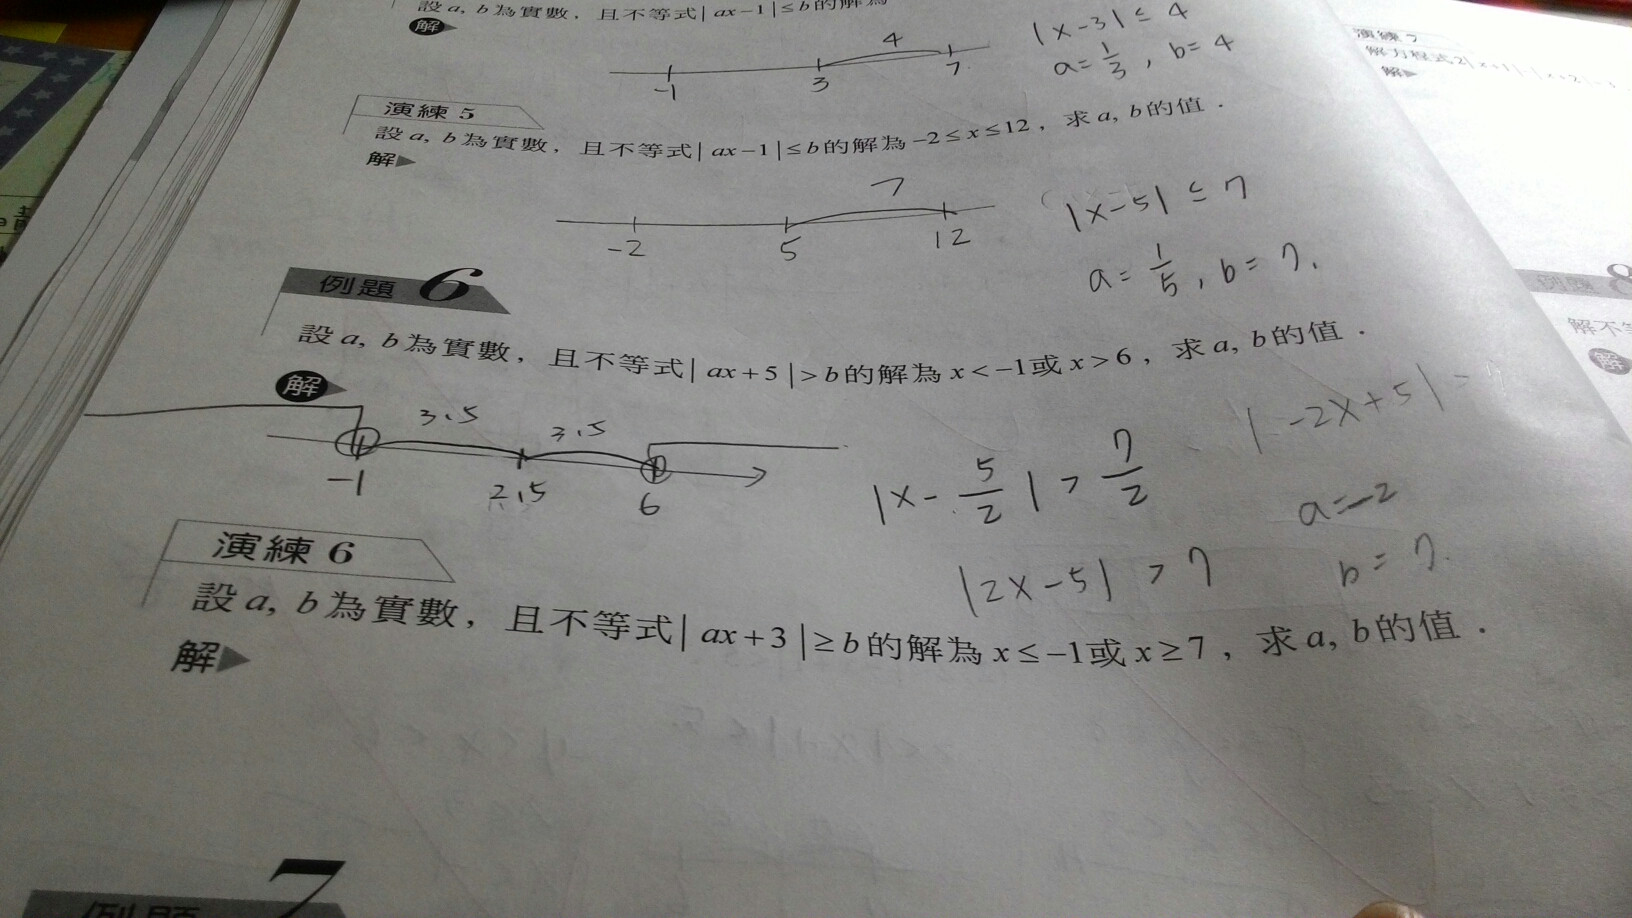 設a, b為實數，且不等式| ax−1 |≤b的解為
解
-1 3 4 7
|x-3| ≤ 4
a=1/3, b=4
演練 5
設a, b為實數，且不等式| ax−1 |≤b的解為−2≤x≤12，求a, b的值．
解
-2 5 7 12
|x-5| ≤ 7
a=1/5, b=7.
例題 6
設a, b為實數，且不等式| ax+5 |>b的解為x<−1或x>6，求a, b的值．
解
3.5 3.5
-1 2.5 6
|x-5/2| > 7/2
|2x-5| > 7
|-2x+5|
a=-2
b=7.
演練 6
設a, b為實數，且不等式| ax+3 |≥b的解為x≤−1或x≥7，求a, b的值．
解
例題 7
演練 7
解方程式2|x+1|
解
例題 8
解不等
解